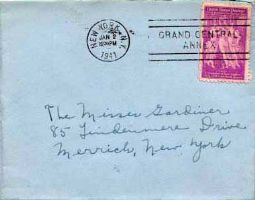 NEW YORK, N.Y.
JAN 2
1941
GRAND CENTRAL
ANNEX
The Misses Gardiner
85 Lindenmere Drive
Merrick, New York